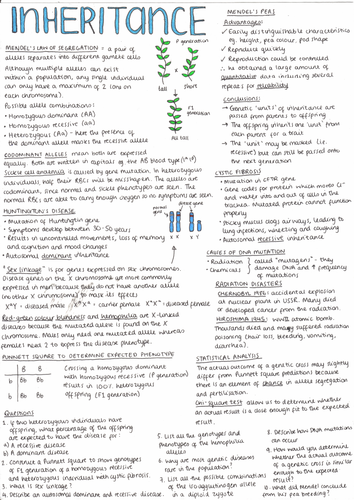 INHERITANCE
MENDEL'S LAW OF SEGREGATION: a pair of
alleles separates into different gamete cells
Although multiple alleles can exist
within a population, any single individual
can only have a maximum of 2 (one on
each chromosome).
Possible allele combinations:
• Homozygous dominant (AA)
• Homozygous recessive (aa)
• Heterozygous (Aa) - here the presence of
the dominant allele masks the recessive allele
P generation
tall
short
F1
generation
All tall
CODOMINANT ALLELES mean both are expressed
equally. Both are written in capitals eg the AB blood type
Sickle cell anaemia is caused by gene mutation. In heterozygous
individuals, half their RBCs will be misshapen. The alleles are
codominant, since normal and sickle phenotypes are seen. The
normal RBCs are able to carry enough oxygen so no symptoms are seen.
HUNTINGTON'S DISEASE
• Mutation of Huntingtin gene
• Symptoms develop between 30-50 years
• Results in uncontrolled movements, loss of memory
and cognition and mood changes
• Autosomal dominant inheritance
normal gene
affected gene
"Sex linkage" is for genes expressed on sex chromosomes.
Disease genes on the X chromosome are more commonly
expressed in men because they do not have another allele
(another X chromosome) to mask its effects
Red-green colour blindness and haemophilia are X-linked
diseases because the mutated allele is found on the X
chromosome. Males only need one mutated allele whereas
females need 2 to express the disease phenotype.
PUNNETT SQUARE TO DETERMINE EXPECTED PHENOTYPE
B B
b Bb Bb
b Bb Bb
Crossing a homozygous dominant
with homozygous recessive (P generation)
results in 100% heterozygous
offspring (F1 generation)
QUESTIONS
1. If two heterozygous individuals have
offspring, what percentage of the offspring
are expected to have the disease for:
a) A recessive disease
b) A dominant disease
2. Construct a Punnett square to show genotypes
of F1 generation of a homozygous recessive
and heterozygous individual with cystic fibrosis.
3. What is sex linkage?
4. Describe an autosomal dominant and recessive disease.
5. List all the genotypes and
phenotypes of the haemophilia
alleles
6. Why are most genetic diseases
rare in the population?
7. List all the possible combinations
of the
in a diploid zygote
MENDEL'S PEAS
Advantages:
✓ Easily distinguishable characteristics
eg. height, pea colour, pod shape
✓ Reproduce quickly
✓ Reproduction could be controlled
∴ he obtained a large amount of
quantitative data including several
repeats for reliability
Conclusions:
→ Genetic "units" of inheritance are
passed from parents to offspring
→ The offspring inherits one 'unit' from
each parent for a trait
→ The "unit" may be masked (i.e.
recessive) but can still be passed onto
the next generation
CYSTIC FIBROSIS
• Mutation in CFTR gene
• Gene codes for protein which moves Cl-
and water into and out of cells in the
trachea. Mutated protein cannot function
properly
• Thick mucus clogs airways, leading to
lung infections, wheezing and coughing
• Autosomal recessive inheritance
CAUSES OF DNA MUTATIONS
• Radiation
• Chemicals
called "mutagens" - they
damage DNA and ↑ frequency
of mutations
RADIATION DISASTERS
CHERNOBYL 1986: accidental explosion
at nuclear plant in USSR. Many died
or developed cancer from the radiation
HIROSHIMA 1945: WW2 atomic bomb.
Thousands died and many suffered radiation
poisoning (hair loss, bleeding, vomiting,
diarrhoea).
STATISTICAL ANALYSIS
The actual outcome of a genetic cross may slightly
differ from Punnett square predictions because
there is an element of chance in allele segregation
and fertilisation.
Chi-square test allow us to determine whether
an actual result is close enough fit to the expected
result.
8. Describe how DNA mutations
can occur
9. How would you determine
whether the actual outcome
of a genetic cross is similar
enough to the expected
result?
10. What did Mendel conclude
from his pea breeding?